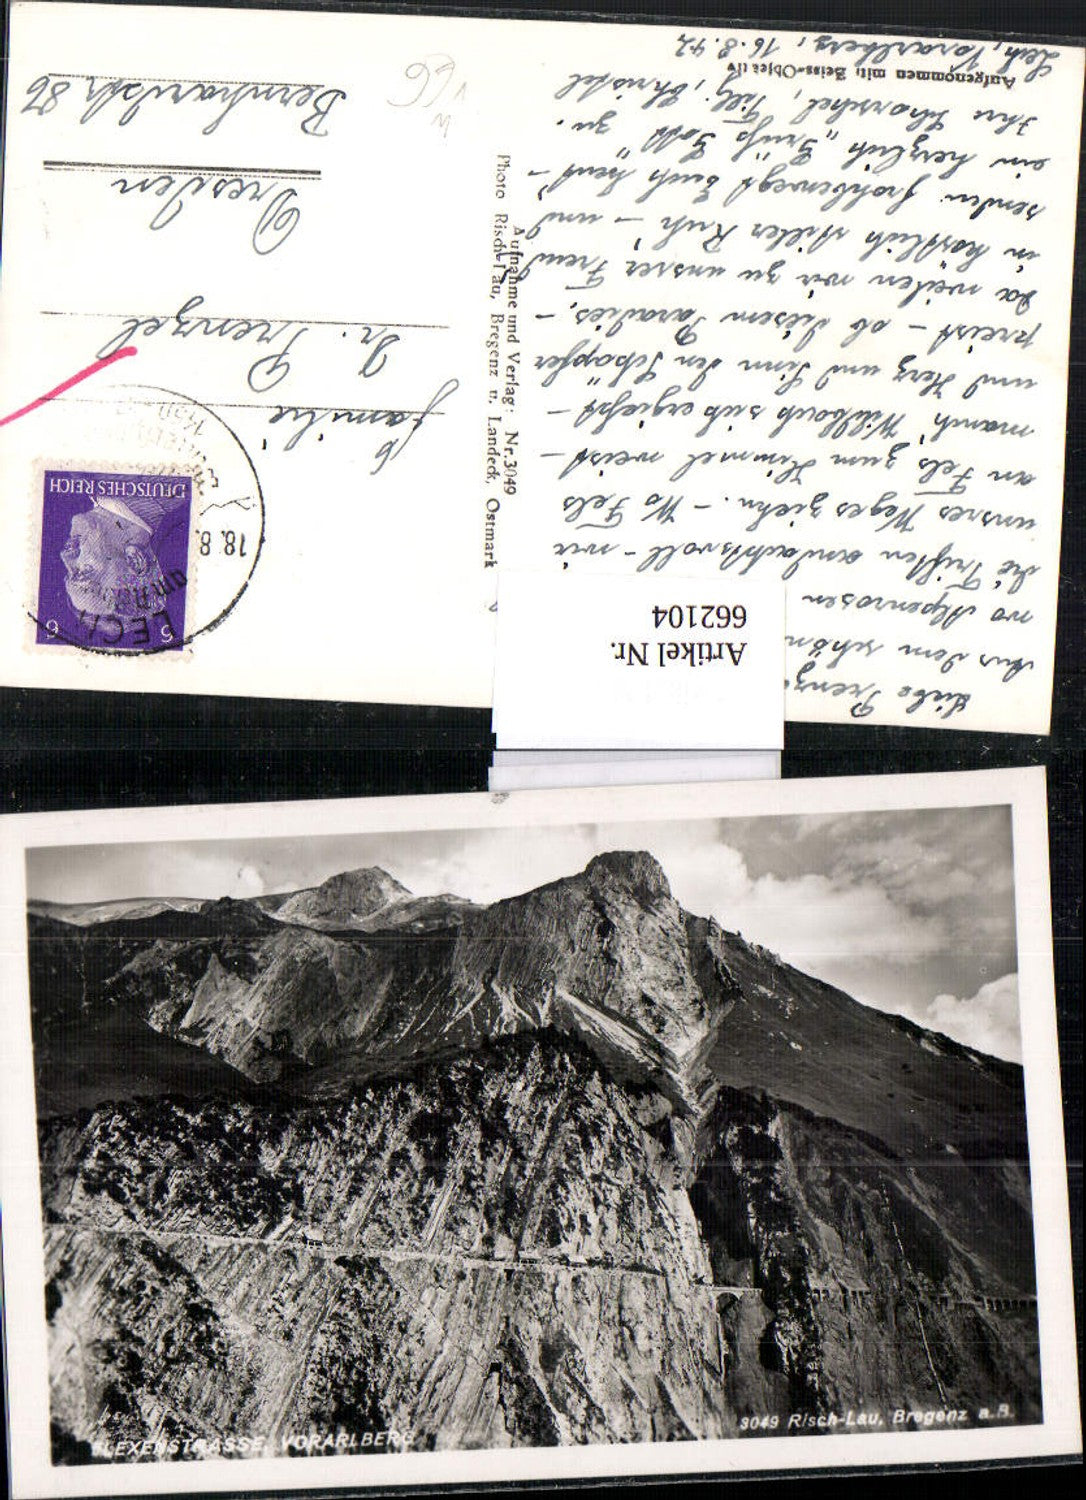 Lech, Vorarlberg, 16.8.42
Aufgenommen mit Zeiss-Objektiv
Liebe Frenz
Aus dem schön
wo Alpenrosen
die Triften andachtsvoll - wir
unsres Weges ziehn. - Wo Fels
an Fels zum Himmel weist -
manch' Wildbach sich ergießt -
und Herz und Sinn den Schöpfer
preist - ob diesem Paradies. -
Da weilen wir zu unsrer Freud
in köstlich stiller Ruh' - und
senden Euch heut -
ein herzlich "Grüß Gott" zu.
Ihre Christel
Aufnahme und Verlag: Nr. 3049
Photo Risch-Lau, Bregenz u. Landeck, Ostmark
Familie
Dr. Frenzel
Dresden
Bernhardstr 86
DEUTSCHES REICH
6 6
LECH
am Arlberg
18.8.
Artikel Nr.
662104
FLEXENSTRASSE, VORARLBERG
3049 Risch-Lau, Bregenz a.B.